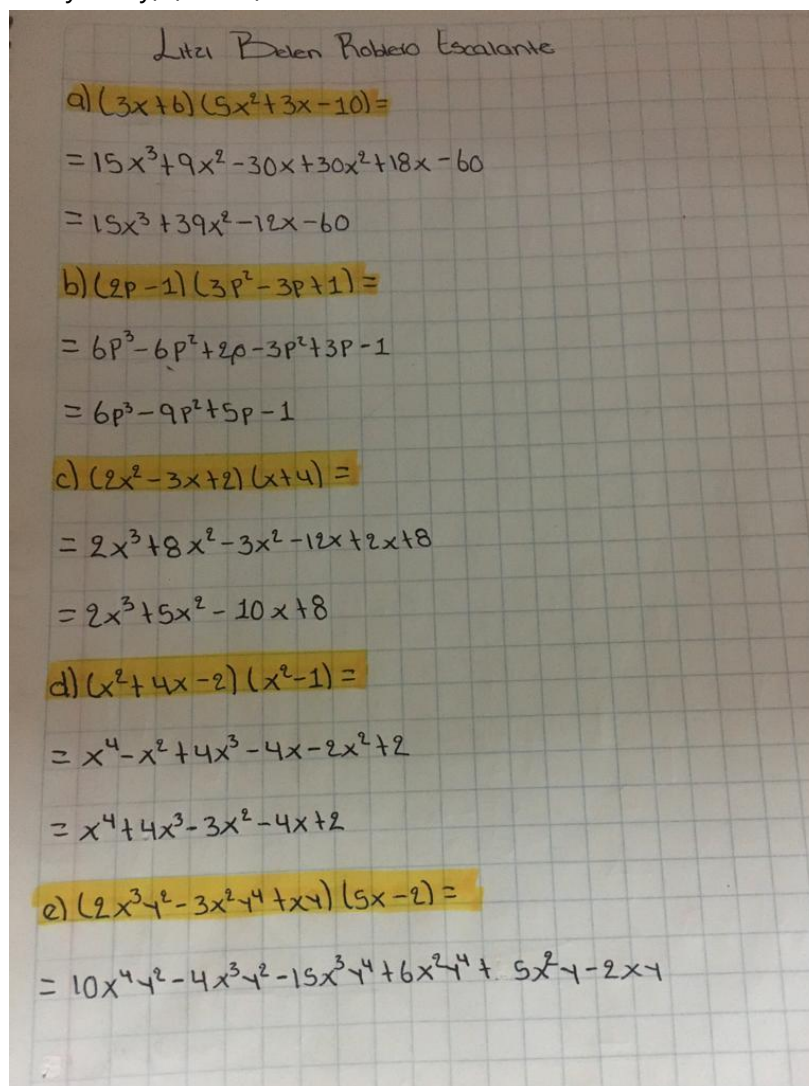 Litzi Belen Roblero Escalante
a) (3x+6)(5x²+3x-10)=
= 15x³+9x²-30x+30x²+18x-60
= 15x³+39x²-12x-60
b) (2p-1)(3p²-3p+1)=
= 6p³-6p²+2p-3p²+3p-1
= 6p³-9p²+5p-1
c) (2x²-3x+2)(x+4)=
= 2x³+8x²-3x²-12x+2x+8
= 2x³+5x²-10x+8
d) (x²+4x-2)(x²-1)=
= x⁴-x²+4x³-4x-2x²+2
= x⁴+4x³-3x²-4x+2
e) (2x³y²-3x²y⁴+xy)(5x-2)=
= 10x⁴y²-4x³y²-15x³y⁴+6x²y⁴+5x²y-2xy